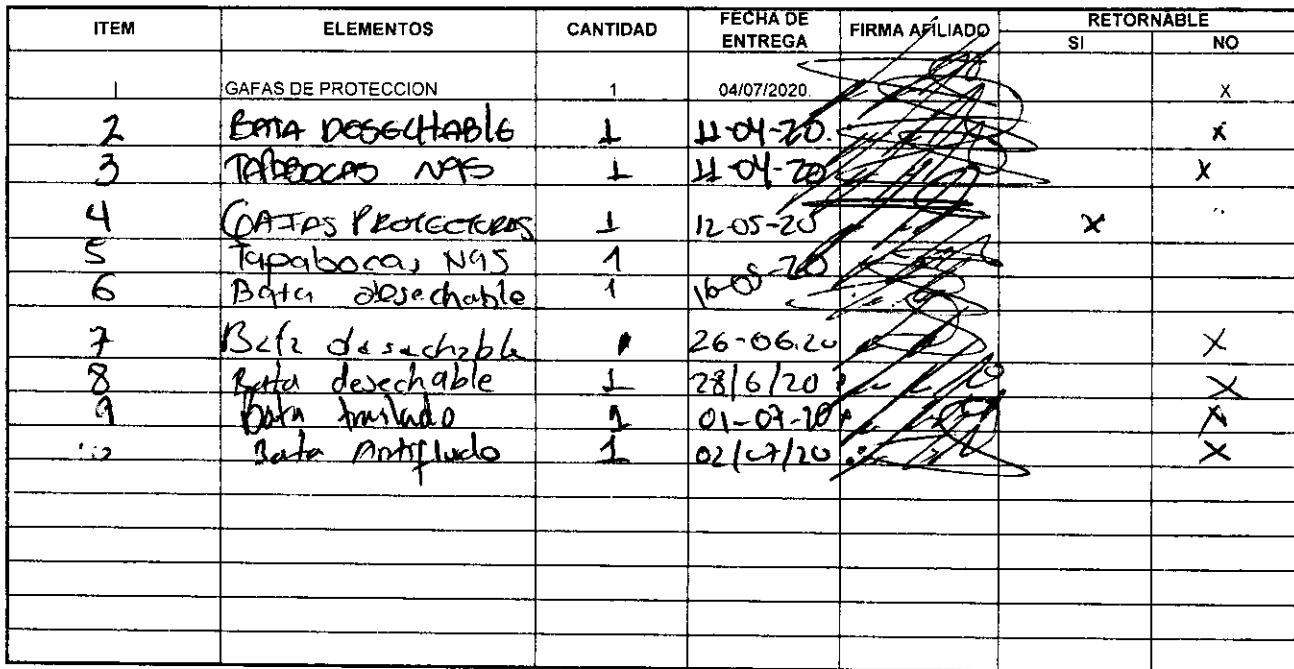 ITEM ELEMENTOS CANTIDAD FECHA DE ENTREGA FIRMA AFILIADO RETORNABLE
SI NO
1 GAFAS DE PROTECCION 1 04/07/2020 X
2 BATA DESECHABLE 1 11-04-20 X
3 TAPABOCAS N95 1 11-04-20 X
4 GAFAS PROTECTORAS 1 12-05-20 X
5 Tapabocas N95 1
6 Bata desechable 1 16-05-20
7 Bata desechable 1 26-06-20 X
8 Bata desechable 1 28/6/20 X
9 Bata traslado 1 01-07-20 X
10 Bata Antifluido 1 02/07/20 X